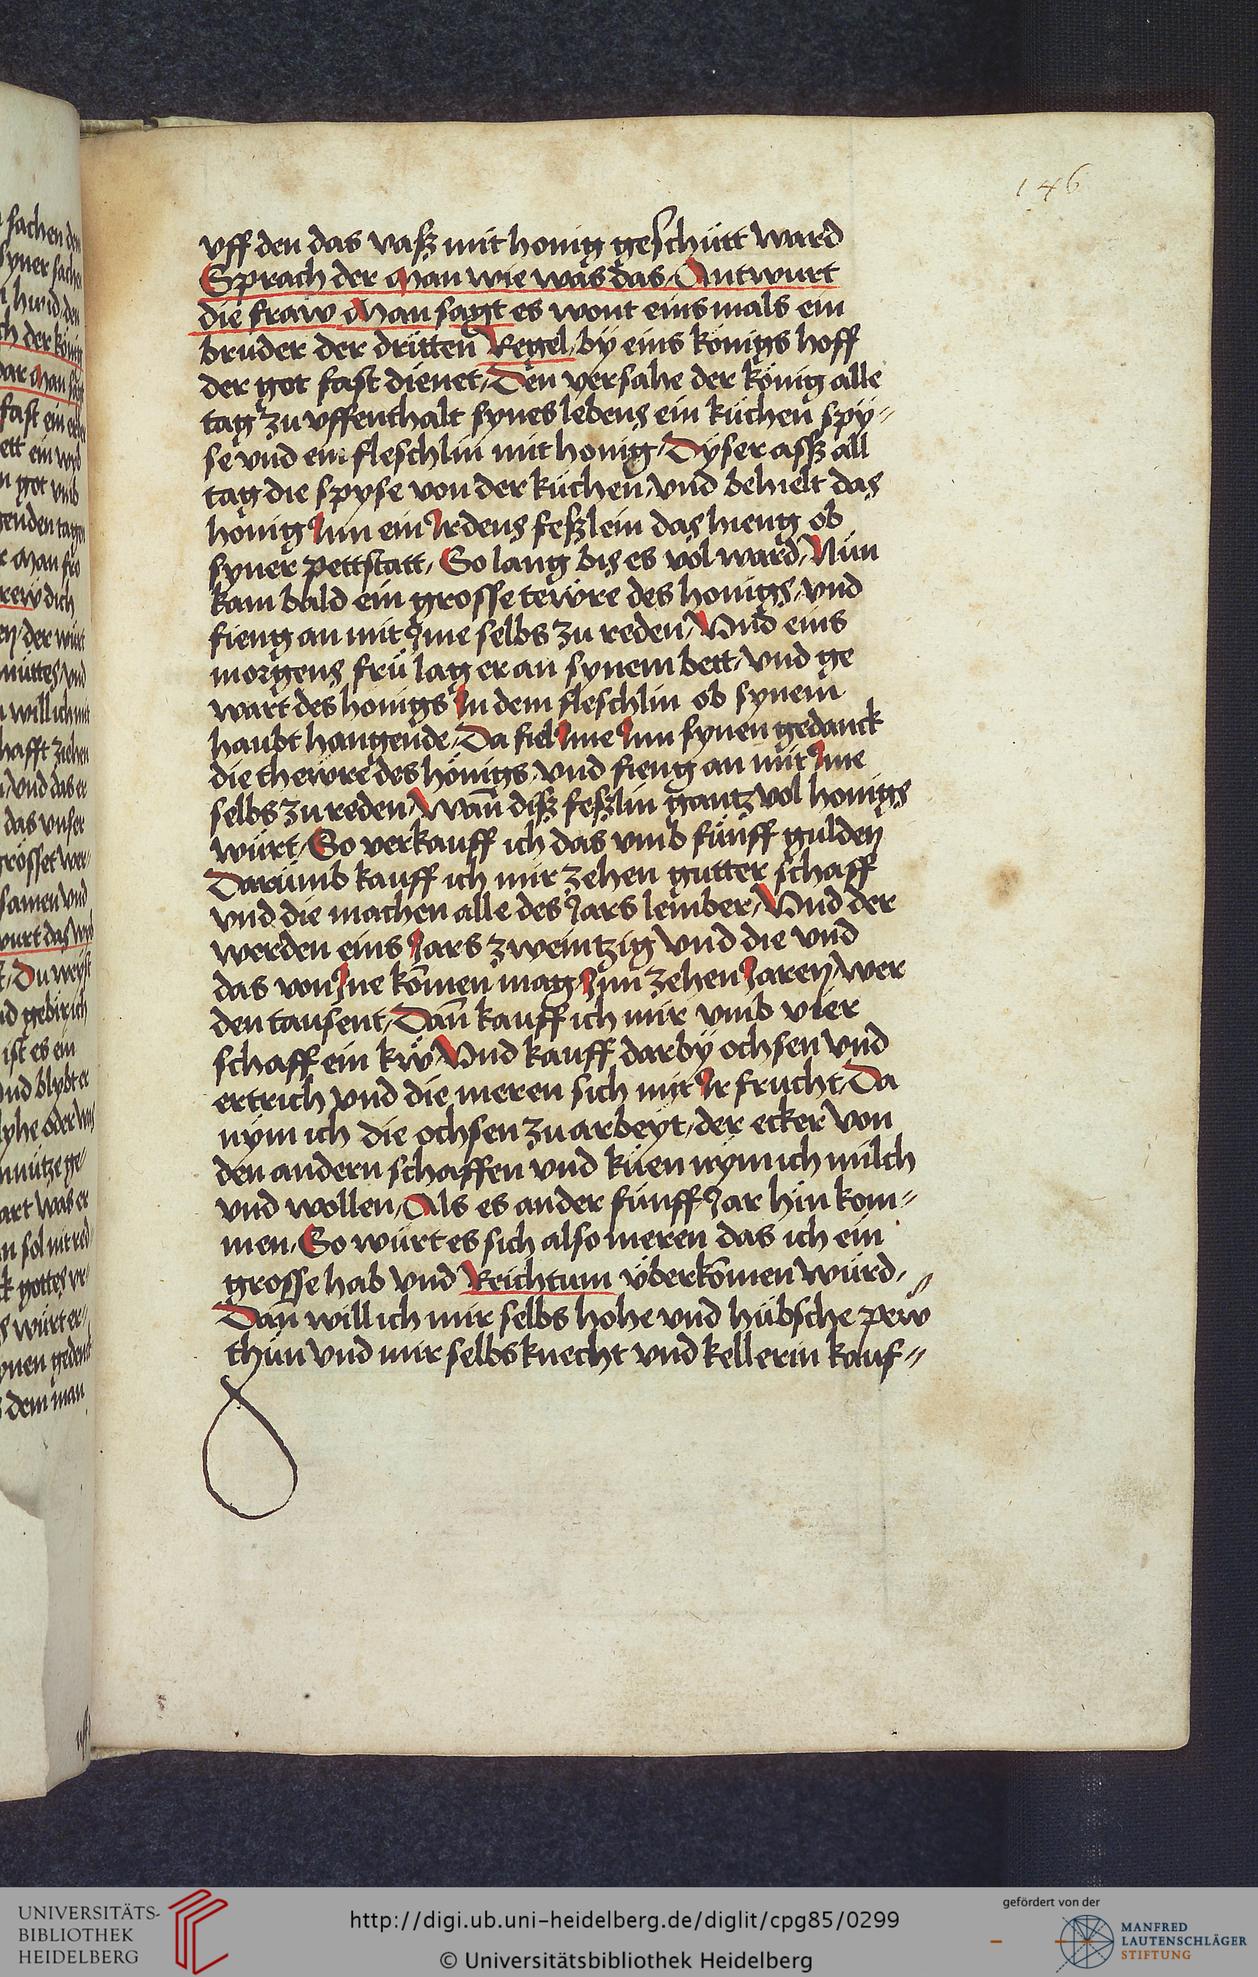 146
vff den das vasß mit honig geschütt ward
Sprach der Man wie was das / Antwurt
die fraw Man sagt es wont eins mals ein
bruder der dritten Regel / by eins königs hoff
der got fast dienet / Den versahe der könig alle
tag zu vffenthalt synes lebens ein kuchen spy=
se vnd ein fleschlin mit honig / Dyser asß all
tag die spyse von der kuchen / vnd behielt das
honig Inn ein Irdens feßlein das hieng ob
syner pettstatt / So lang bis es vol ward / Nun
kam bald ein grosse tewre des honigs / vnd
fieng an mit Ime selbs zu reden / Vnd eins
morgens frü lag er an synem bett / vnd ge
wart des honigs In dem fleschlin ob synem
haubt hangende / Da fiel Ime Inn synen gedanck
die thewre des hönigs / vnd fieng an mit Ime
selbs zu reden / Wañ diß feßlin gantz vol honigs
würt / So verkauff ich das vmb fünff gulden
Darumb kauff ich mir zehen gutter schaff
vnd die machen alle des Jars lember / Vnd der
werden eins Jars zweintzig vnd die vnd
das von Ine kömen mag Inn zehen Jaren / wer
den tausent / Dañ kauff ich mir vmb vier
schaff ein kw Vnd kauff darby ochsen vnd
ertrich vnd die meren sich mit Ir frucht / Da
nym ich die ochsen zu arbeyt / der ecker von
den andern schaffen vnd küen nym ich milch
vnd wollen / Als es ander fünff Jar hin kom=
men / So würt es sich also meren das ich ein
grosse hab vnd Reichtum vberkomen würd /
Dan will ich mir selbs hohe vnd hübsche pew
thün vnd mir selbs knecht vnd kellerin kauf=
UNIVERSITÄTS-
BIBLIOTHEK
HEIDELBERG
http://digi.ub.uni-heidelberg.de/diglit/cpg85/0299
© Universitätsbibliothek Heidelberg
gefördert von der
MANFRED
LAUTENSCHLÄGER
STIFTUNG